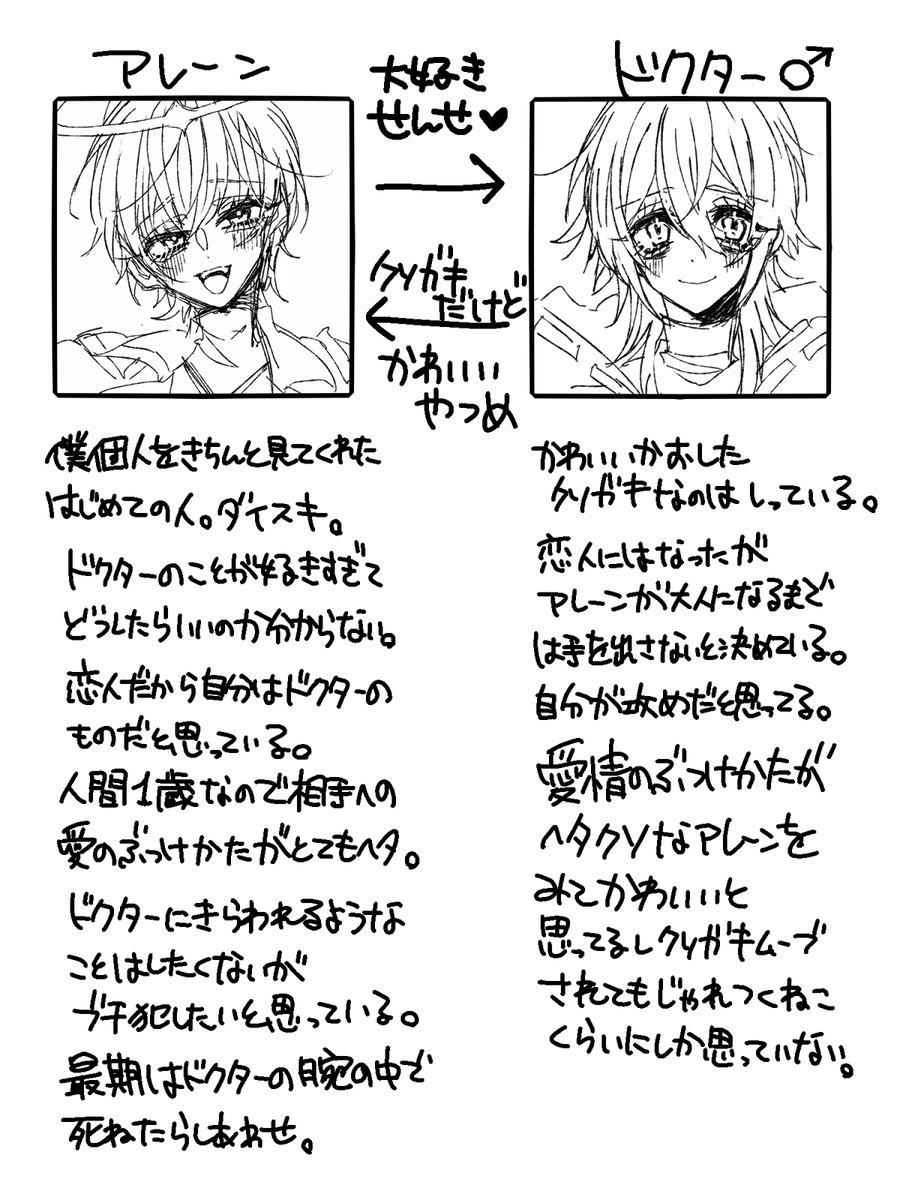 アレーン
大好き
せんせ♥
ドクター♂
クソガキ
だけど
かわいい
やつめ
僕個人をきちんと見てくれた
はじめての人。ダイスキ。
ドクターのことが好きすぎて
どうしたらいいのか分からない。
恋人だから自分はドクターの
ものだと思っている。
人間1歳なので相手への
愛のぶつけかたがとてもヘタ。
ドクターにきらわれるような
ことはしたくないが
ブチ犯したいと思っている。
最期はドクターの腕の中で
死ねたらしあわせ。
かわいいかおした
クソガキなのはしっている。
恋人にはなったが
アレーンが大人になるまで
は手を出さないと決めている。
自分が攻めだと思ってる。
愛情のぶつけかたが
ヘタクソなアレーンを
みてかわいいと
思ってるしクソガキムーブ
されてもじゃれつくねこ
くらいにしか思っていない。